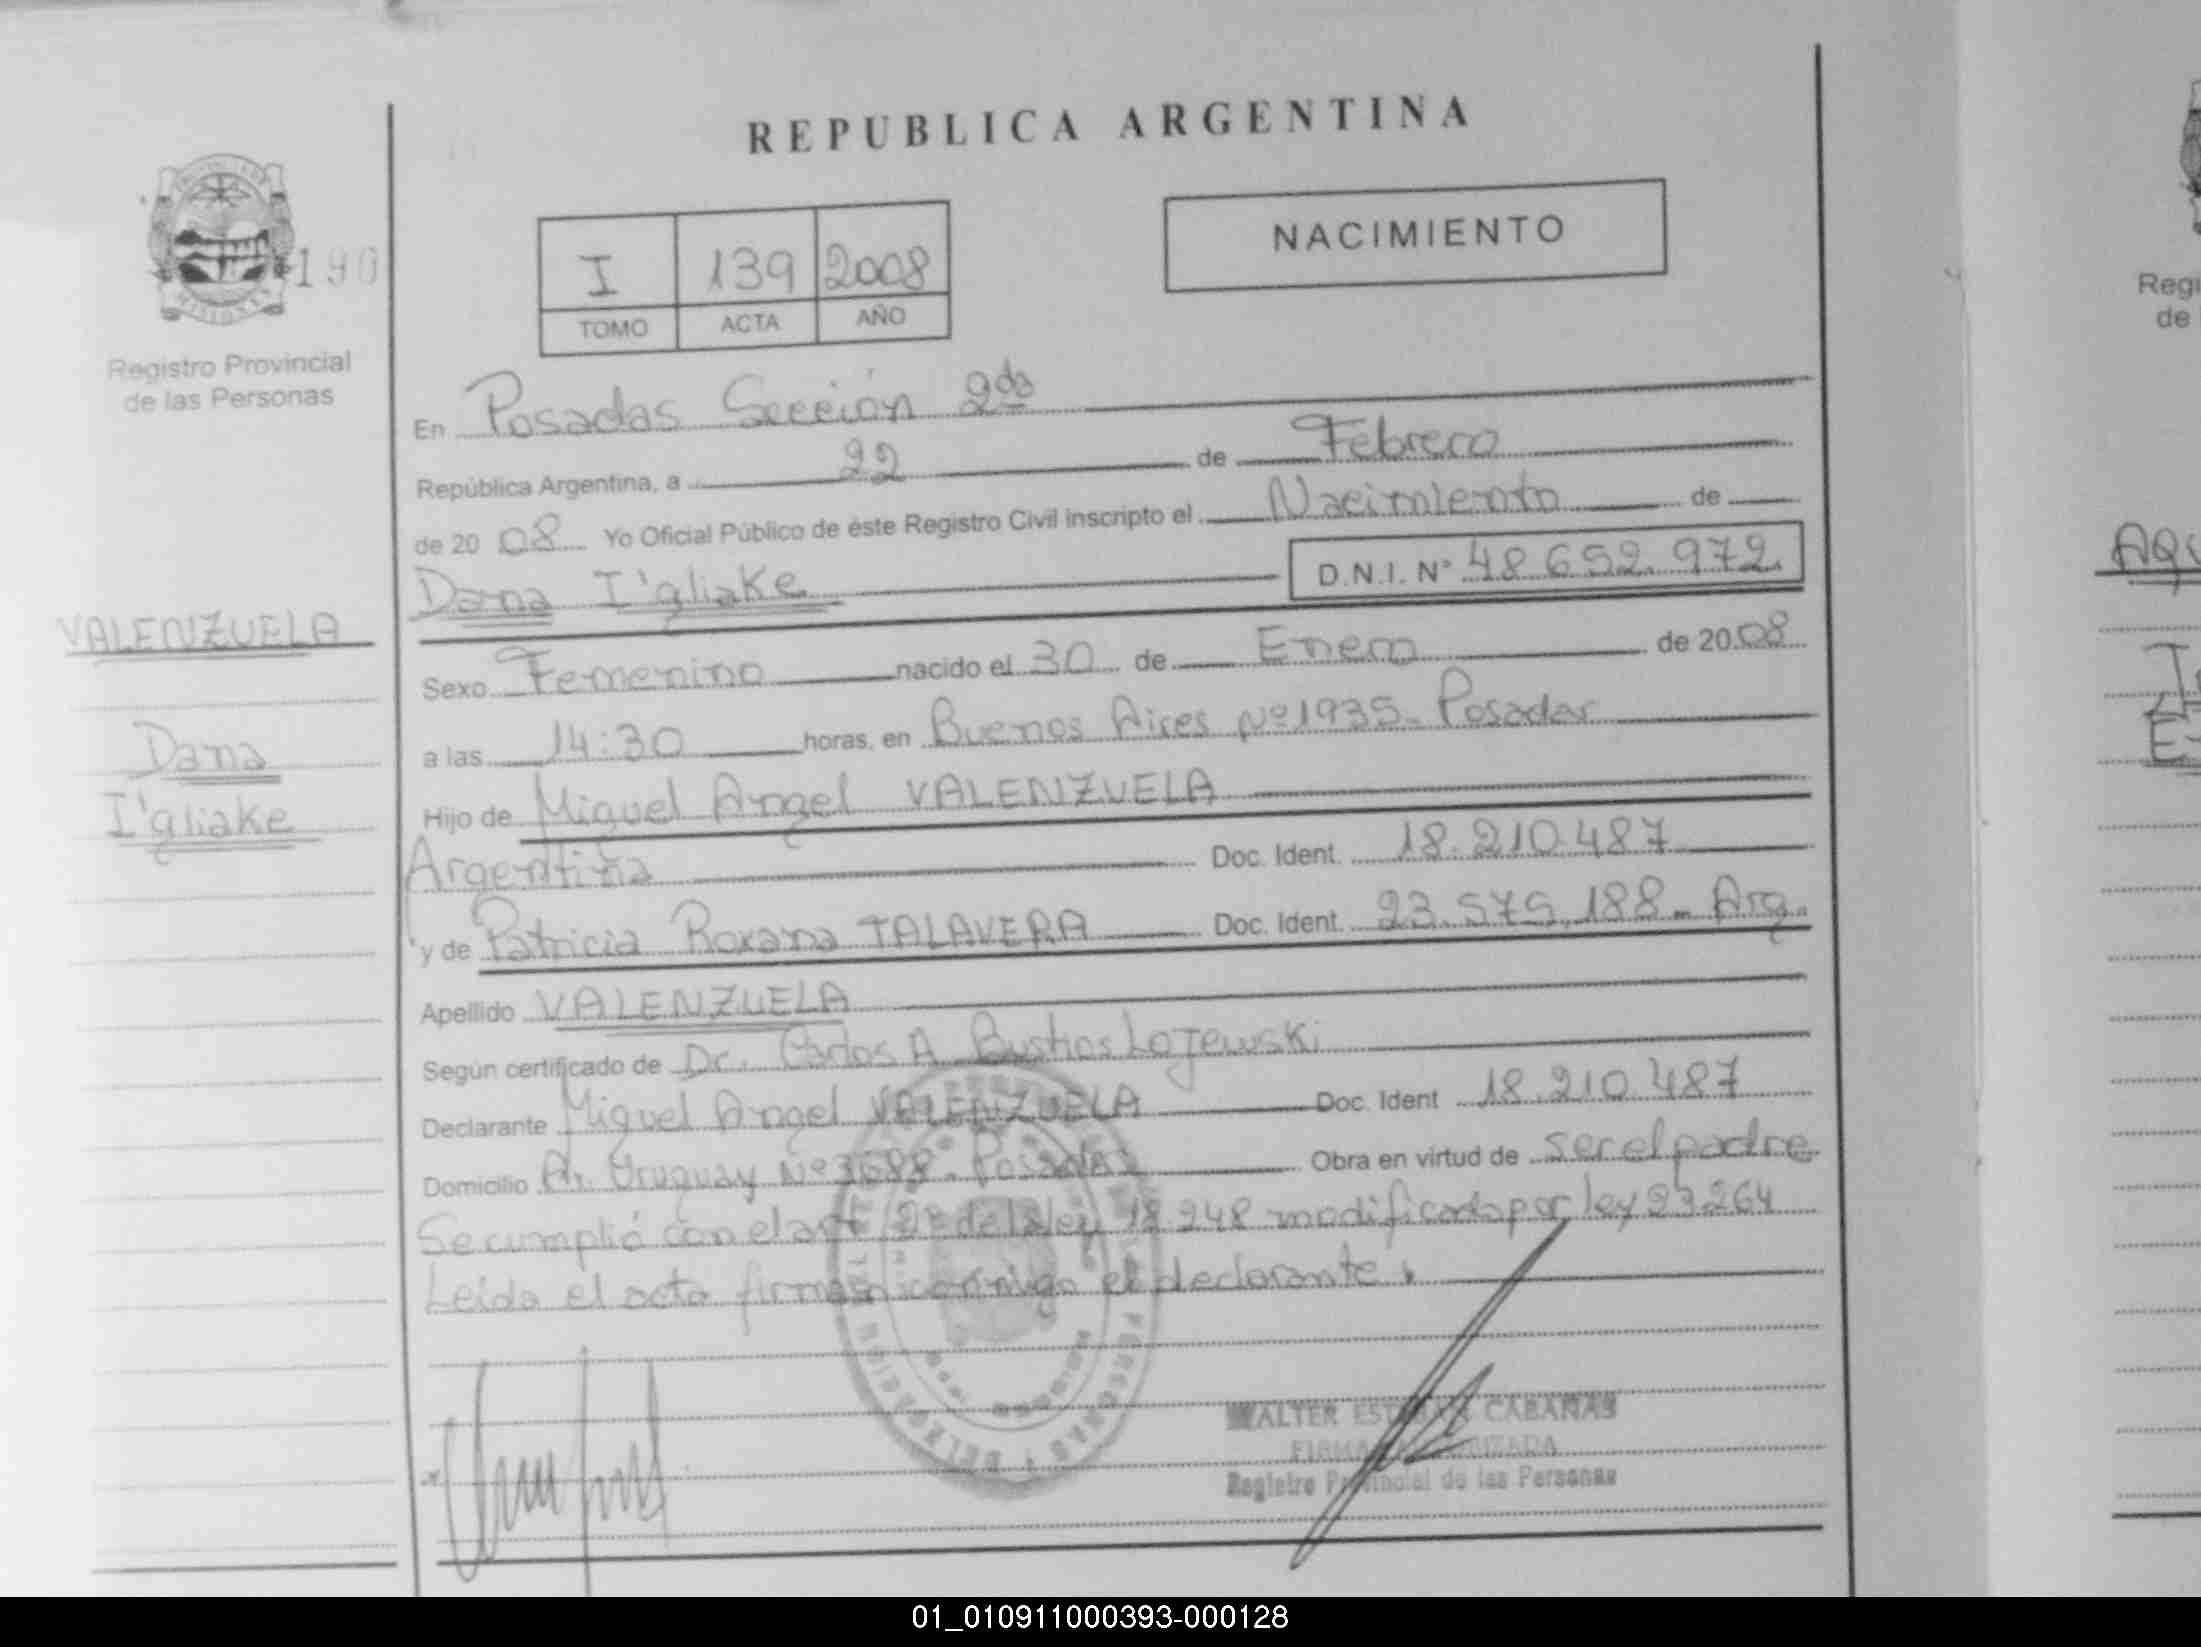 REPUBLICA ARGENTINA
190
Registro Provincial
de las Personas
I 139 2008
TOMO ACTA AÑO
NACIMIENTO
En Posadas Sección 2da
República Argentina, a 22 de Febrero
de 2008 Yo Oficial Público de éste Registro Civil inscripto el Nacimiento de
Dana I'gliake D.N.I. N° 48.652.972
VALENZUELA
Dana
I'gliake
Sexo Femenino nacido el 30 de Enero de 2008
a las 14:30 horas, en Buenos Aires Nº 1935 - Posadas
Hijo de Miguel Angel VALENZUELA
Argentina Doc. Ident. 18.210.487
y de Patricia Roxana TALAVERA Doc. Ident. 23.575.188 - Arg.
Apellido VALENZUELA
Según certificado de Dr. Carlos A Bustios Lojewski
Declarante Miguel Angel VALENZUELA Doc. Ident 18.210.487
Domicilio Av. Uruguay Nº 3688 - Posadas Obra en virtud de ser el padre
Se cumplió con el art 2º de la ley 18.248 modificada por ley 23264
Leída el acta firman conmigo el declarante.
WALTER ESTEBAN CABAÑAS
FIRMA AUTORIZADA
Registro Provincial de las Personas
Regi
de
AQU
01_010911000393-000128